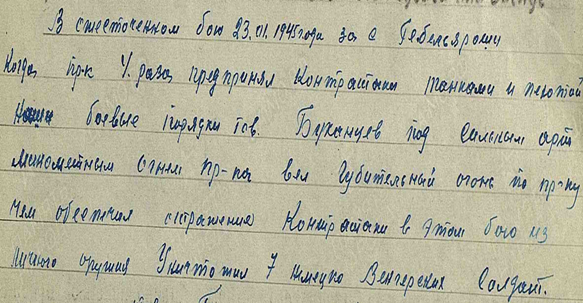 В ожесточенном бою 23.01.1945 года за с Гебельяроши
Когда пр-к 4 раза предпринял контратаки танками и пехотой
на наши боевые порядки тов. Буханцев под сильным арт
минометным огнем пр-ка вел губительный огонь по пр-ку
чем обеспечил отражение контратаки в этом бою из
личного оружия уничтожил 7 немецко венгерских солдат.